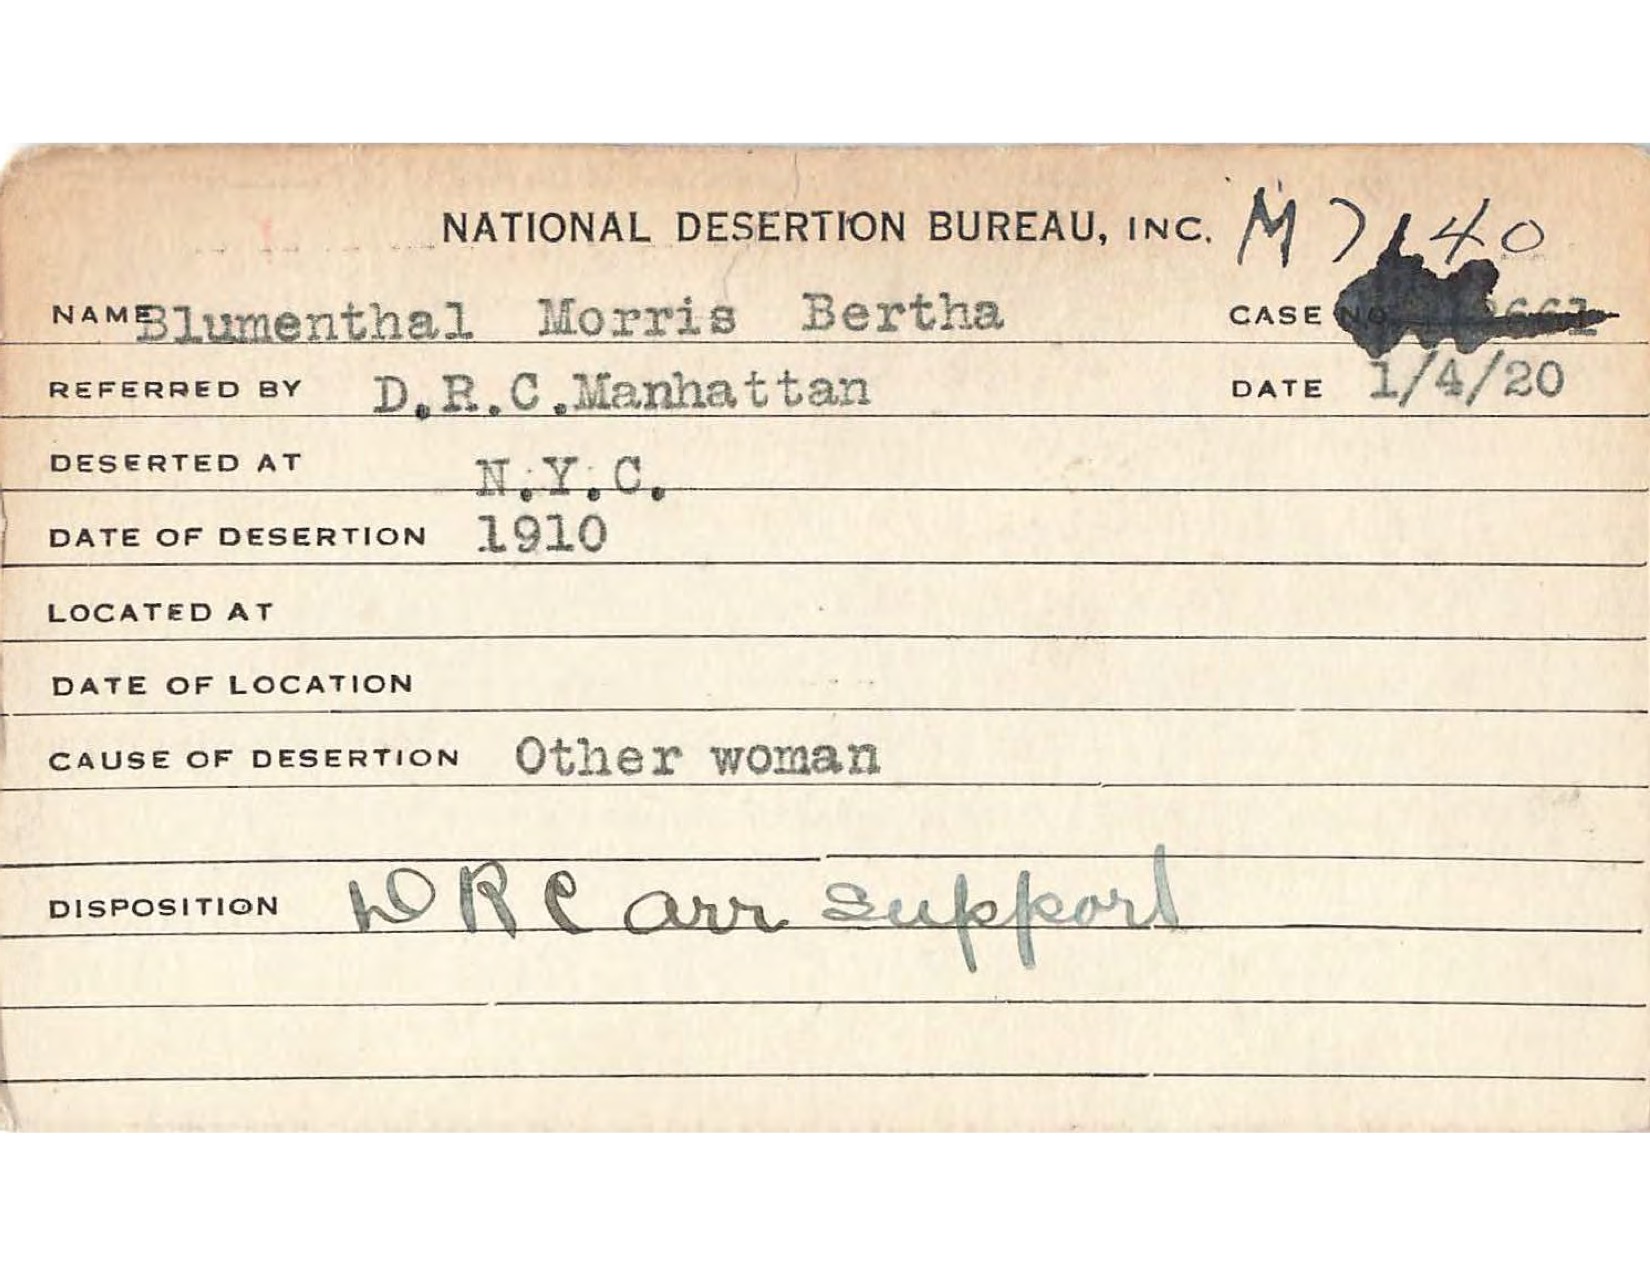 NATIONAL DESERTION BUREAU, INC. M 7140
NAME Blumenthal Morris Bertha CASE NO
REFERRED BY D.R.C. Manhattan DATE 1/4/20
DESERTED AT N.Y.C.
DATE OF DESERTION 1910
LOCATED AT
DATE OF LOCATION
CAUSE OF DESERTION Other woman
DISPOSITION DRC arr support